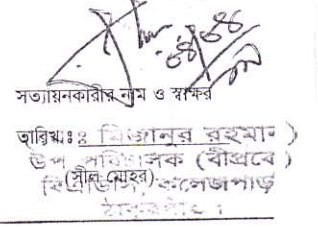 সত্যায়নকারীর নাম ও স্বাক্ষর
তারিখঃ মিজানুর রহমান )
উপ পরিচালক (বীপ্রবে)
(সীল মোহর) বিএডিসি, কলেজপাড়া
ঠাকুরগাঁও ।